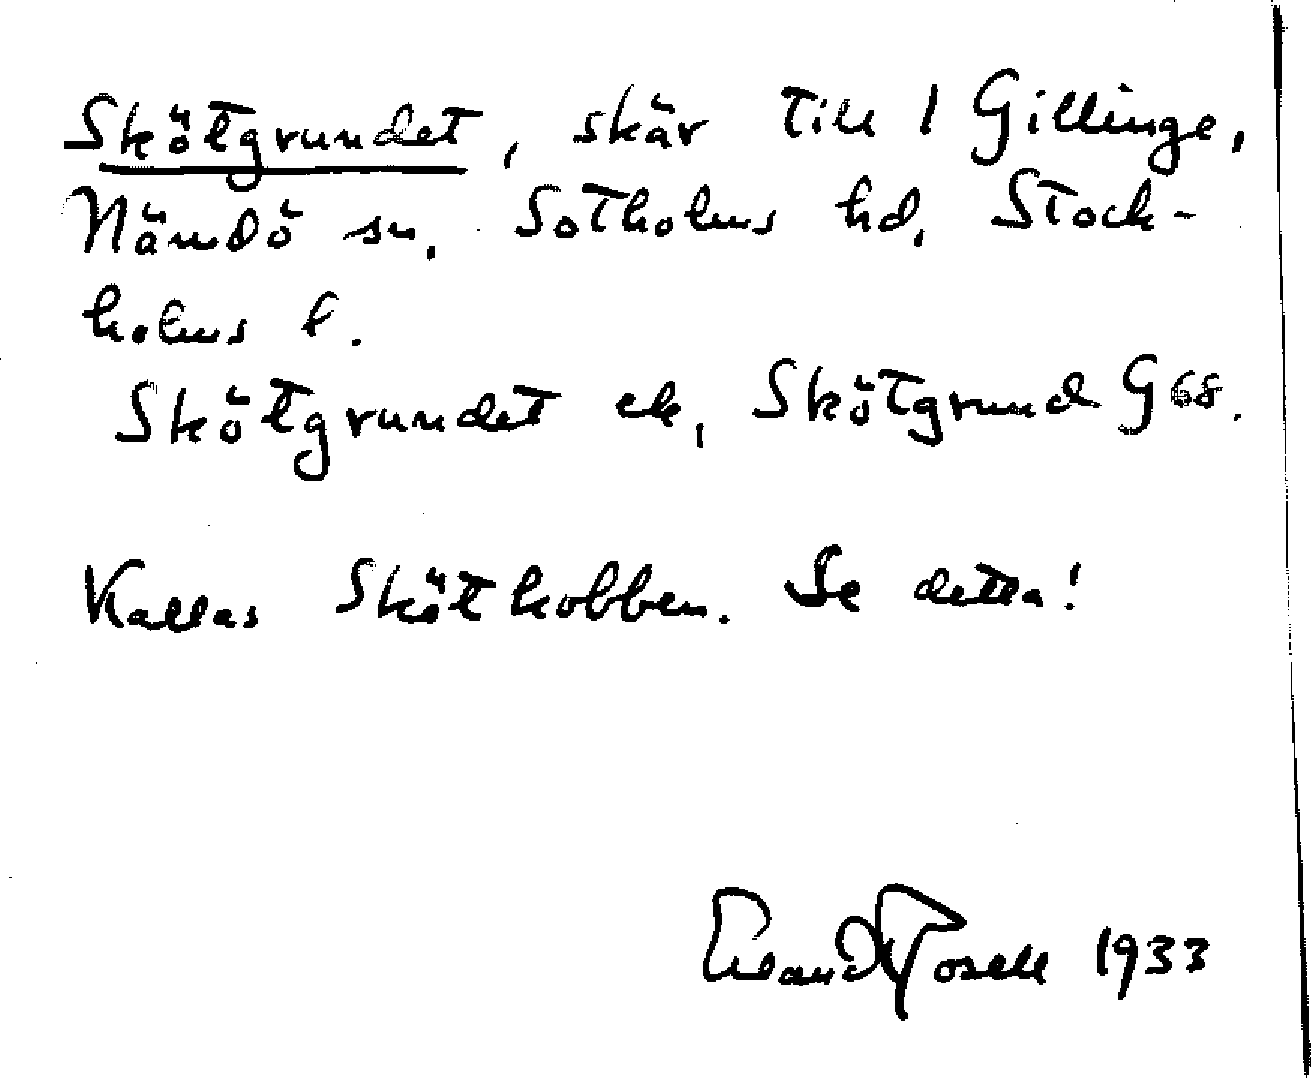 Skötgrundet, skär till 1 Gillinge,
Nämdö sn, Sotholms hd, Stock-
holms l.
Skötgrundet ek, Skötgrund G 68.
Kallas Skötkobben. Se detta!
Erland Rosell 1933